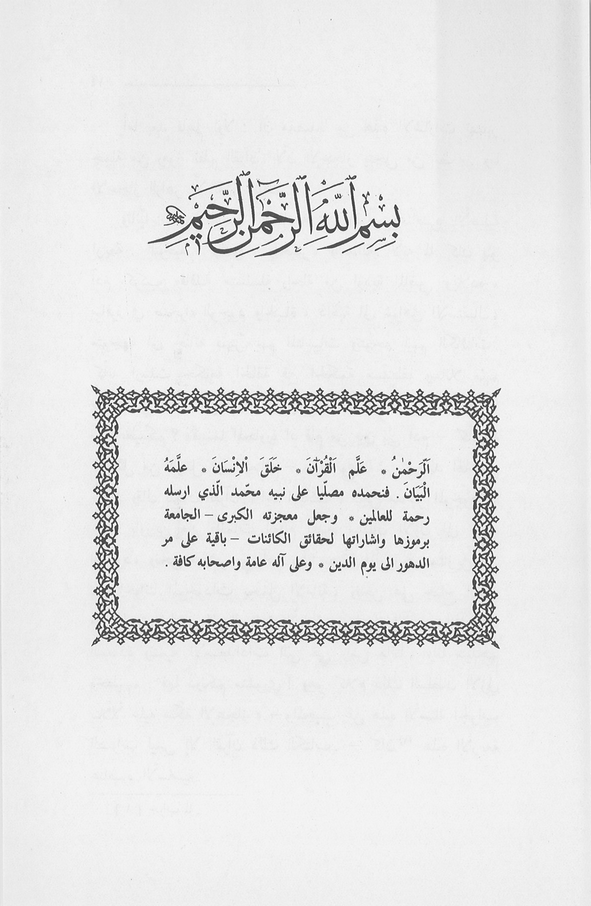 بِسْمِ اللّٰهِ الرَّحْمٰنِ الرَّحِيمِ
اَلرَّحْمٰنُ * عَلَّمَ الْقُرْاٰنَ * خَلَقَ الْاِنْسَانَ * علَّمَهُ
الْبَيَانَ . فنحمده مصلّيا على نبيه محمّد الّذي ارسله
رحمة للعالمين * وجعل معجزته الكبرى – الجامعة
برموزها واشاراتها لحقائق الكائنات – باقية على مر
الدهور الى يوم الدين * وعلى آله عامة واصحابه كافة .